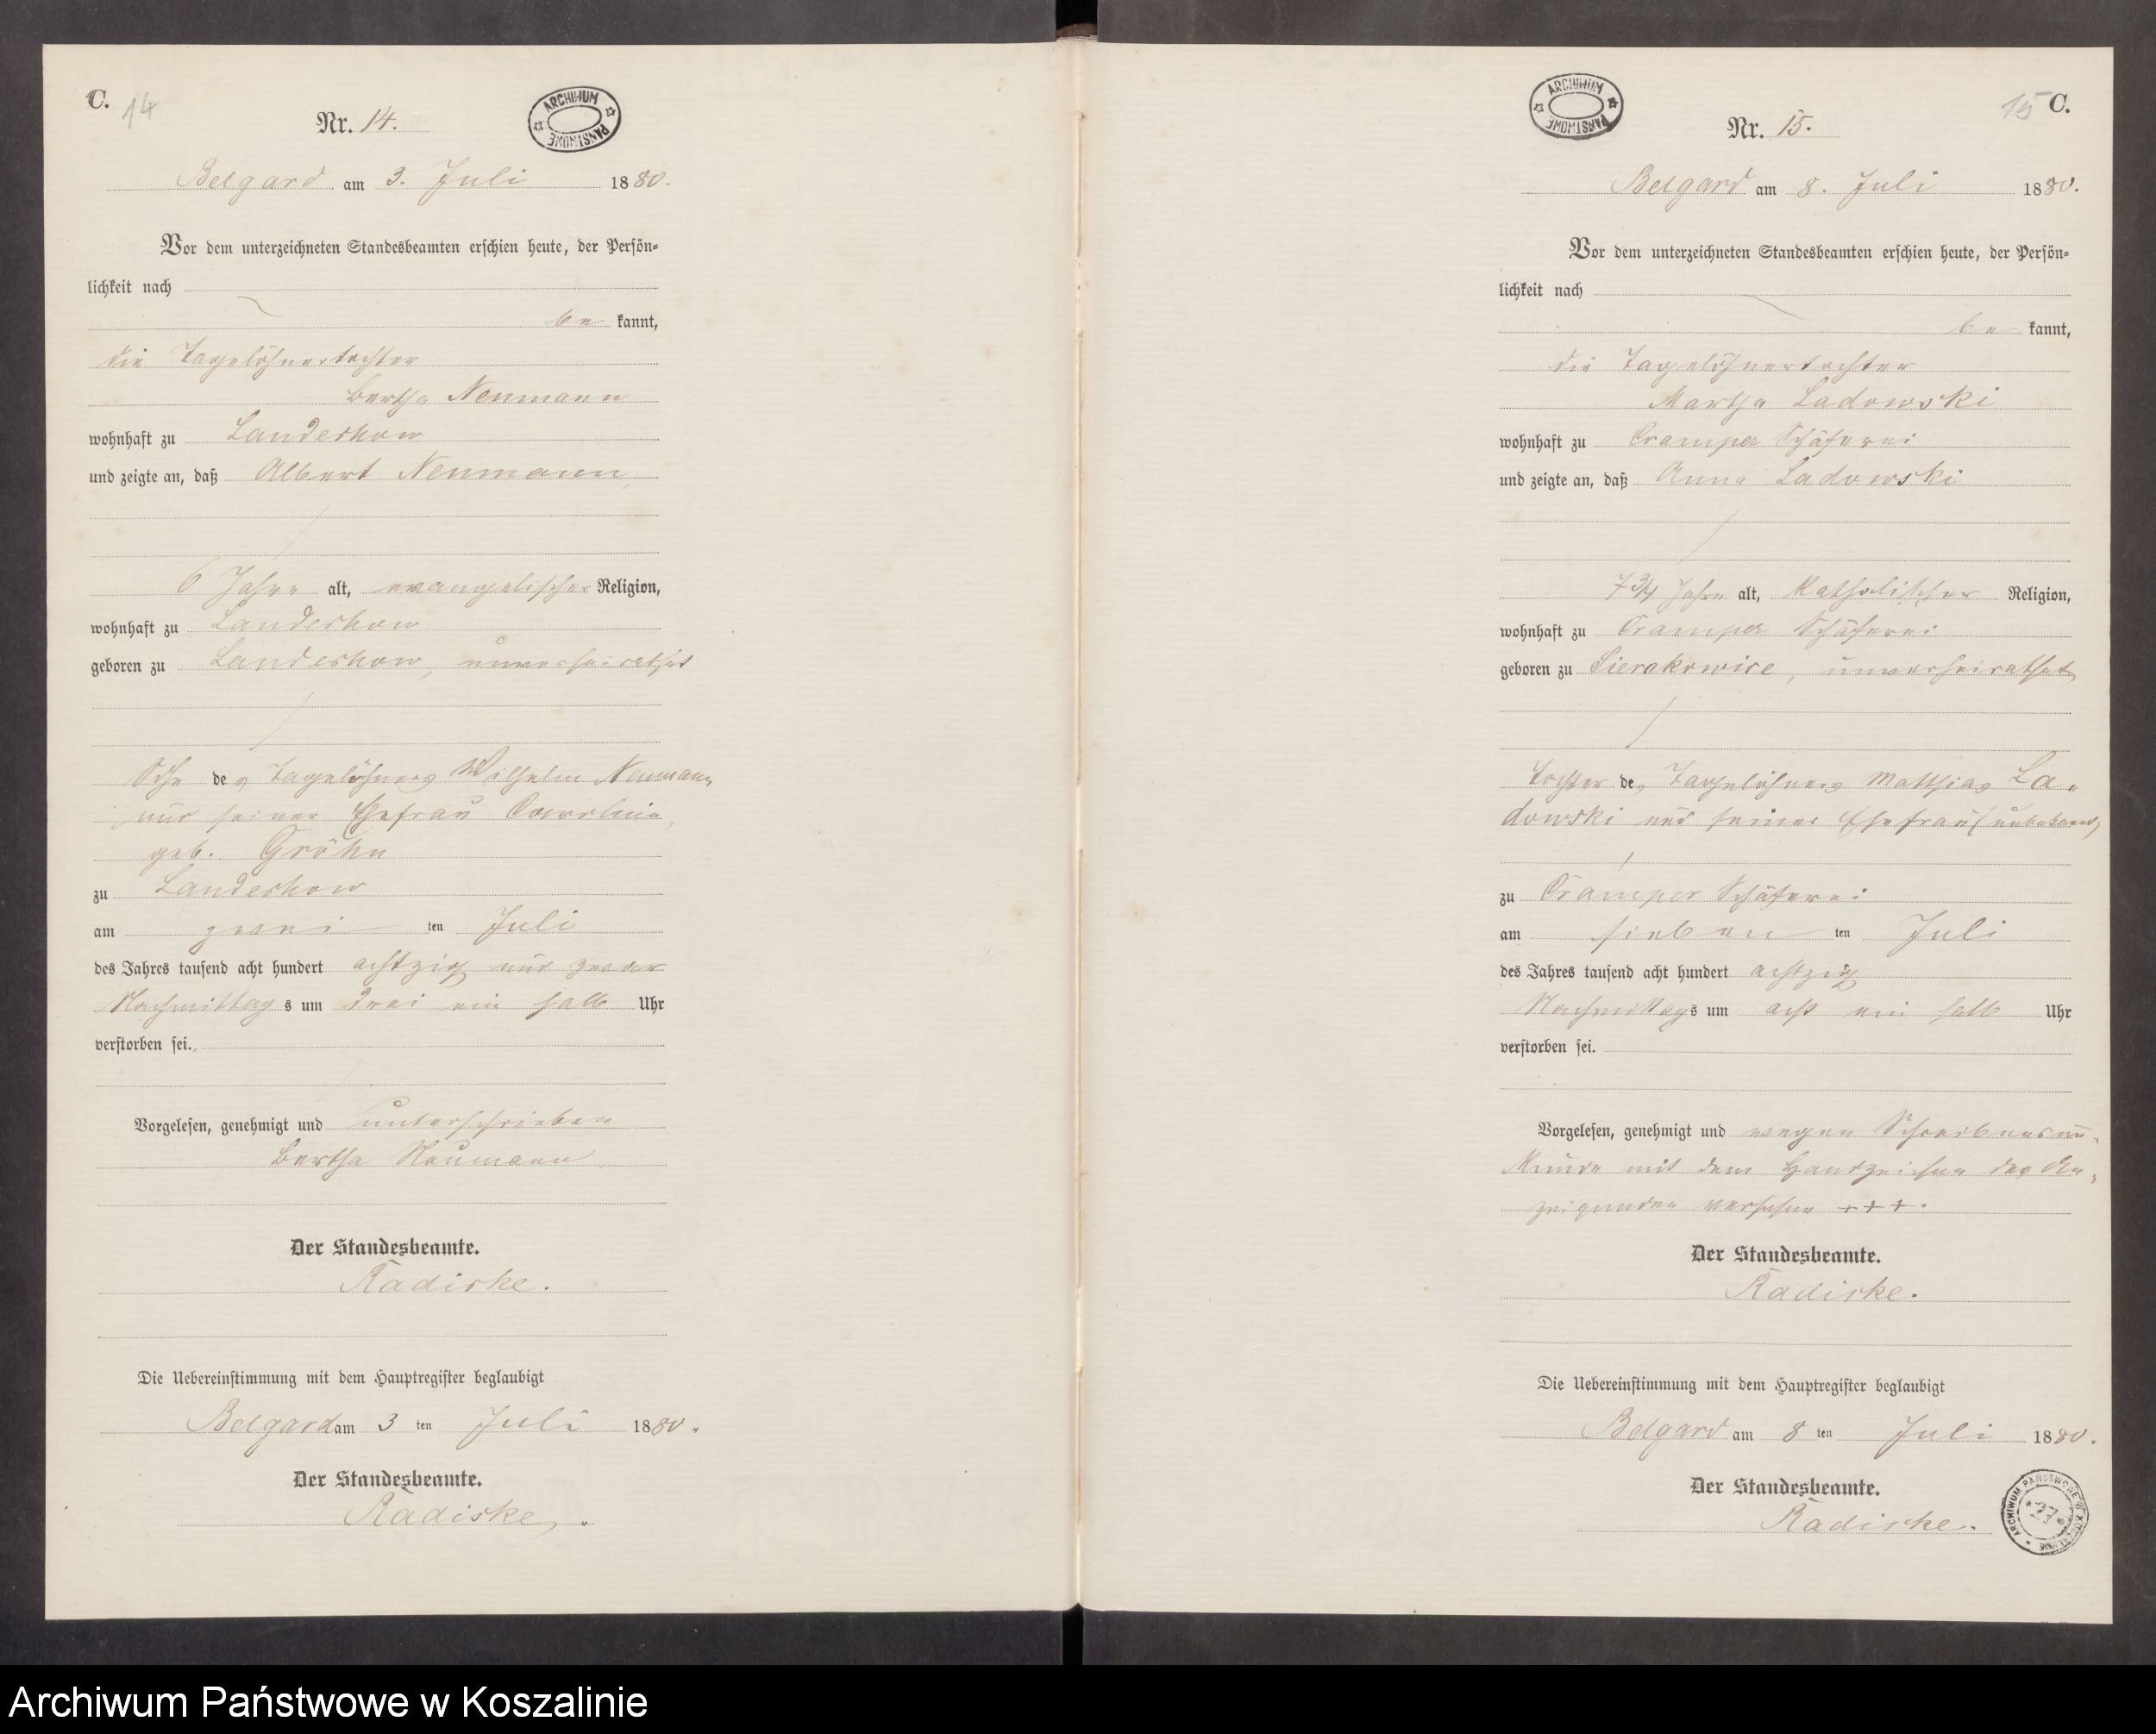 C. 14
ARCHIWUM PAŃSTWOWE
Nr. 14.
Belgard am 3. Juli 1880.
Vor dem unterzeichneten Standesbeamten erschien heute, der Persön-
lichkeit nach
be kannt,
die Tagelöhnertochter
Bertha Neumann
wohnhaft zu Landeshow
und zeigte an, daß Albert Neumann,
6 Jahre alt, evangelischer Religion,
wohnhaft zu Landeshow
geboren zu Landeshow, unverheirathet
Sohn des Tagelöhners Wilhelm Neumann
und seiner Ehefrau
geb. Gröhn
zu Landeshow
am zwei ten Juli
des Jahres tausend acht hundert achtzig und zwar
Nachmittags um drei ein halb Uhr
verstorben sei.
Vorgelesen, genehmigt und unterschrieben
Bertha Neumann
Der Standesbeamte.
Radiske.
Die Uebereinstimmung mit dem Hauptregister beglaubigt
Belgard am 3 ten Juli 1880.
Der Standesbeamte.
Radiske.
15 C.
ARCHIWUM PAŃSTWOWE
Nr. 15.
Belgard am 8. Juli 1880.
Vor dem unterzeichneten Standesbeamten erschien heute, der Persön-
lichkeit nach
be kannt,
die Tagelöhnertochter
Martha Ladowski
wohnhaft zu Cramper Schäferei
und zeigte an, daß Anna Ladowski
7 3/4 Jahre alt, katholischer Religion,
wohnhaft zu Cramper Schäferei
geboren zu Sierakowice, unverheirathet
Tochter des Tagelöhners Matthias La-
dowski und seiner Ehefrau (unbekannt)
zu Cramper Schäferei
am sieben ten Juli
des Jahres tausend acht hundert achtzig
Nachmittags um acht ein halb Uhr
verstorben sei.
Vorgelesen, genehmigt und wegen Schreibensun-
kunde mit dem Handzeichen der An-
zeigenden versehen +++.
Der Standesbeamte.
Radiske.
Die Uebereinstimmung mit dem Hauptregister beglaubigt
Belgard am 8 ten Juli 1880.
Der Standesbeamte.
Radiske.
ARCHIWUM PAŃSTWOWE W KOSZALINIE
Archiwum Państwowe w Koszalinie